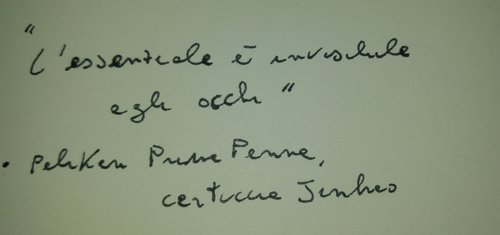 "
L'essenziale è invisibile
agli occhi"
• Pelikan Prima Penna,
cartucce Jinhao